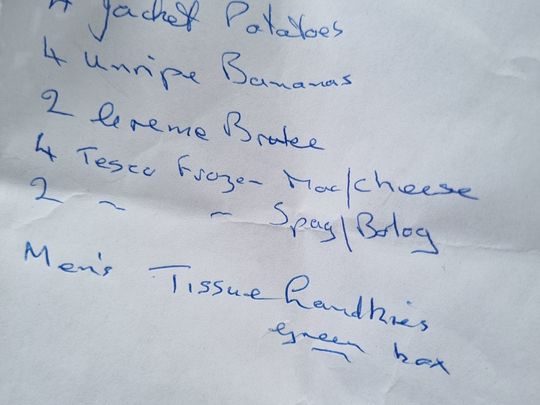 4 Jacket Potatoes
4 Unripe Bananas
2 Creme Brulee
4 Tesco Frozen Mac/cheese
2 ~ ~ Spag/Bolog
Men's Tissue Handkies
green box